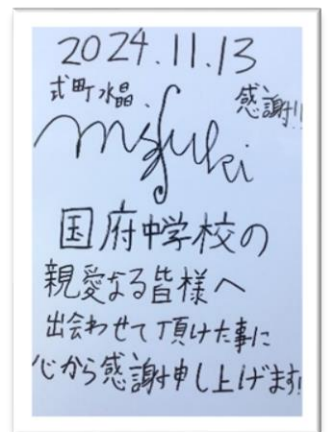 2024.11.13
式町水晶
感謝!!
mizuki
国府中学校の
親愛なる皆様へ
出会わせて頂けた事に
心から感謝申し上げます!